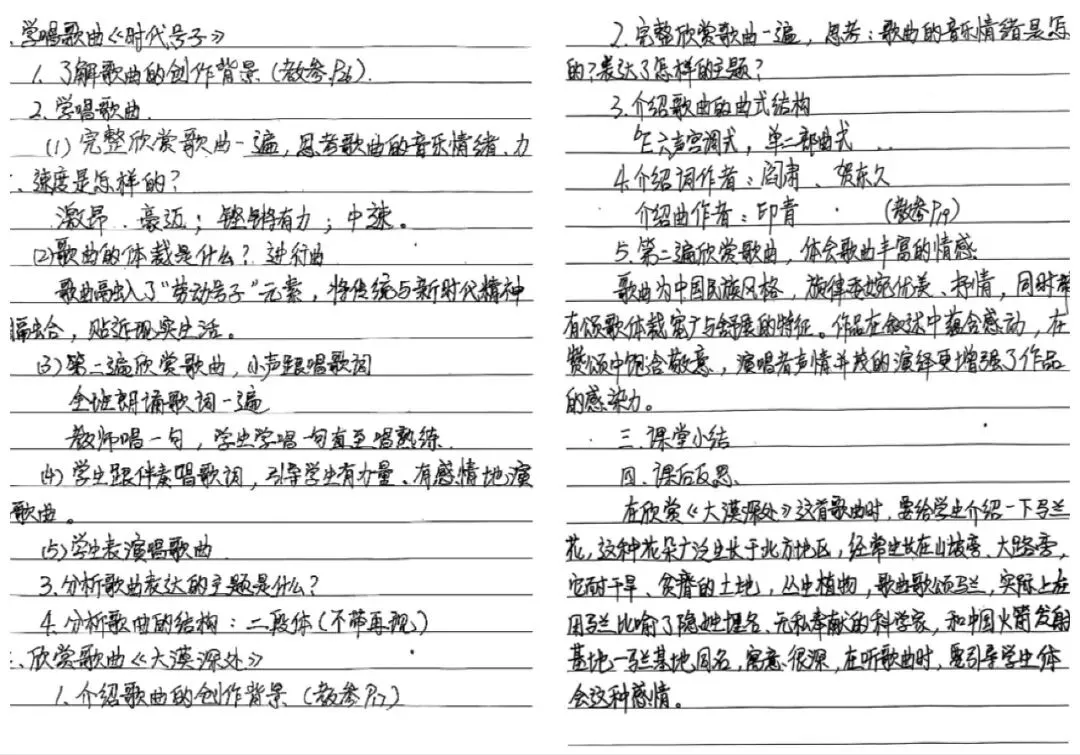 、学唱歌曲《时代号子》
1. 了解歌曲的创作背景（教参P26）.
2. 学唱歌曲.
(1) 完整欣赏歌曲一遍，思考歌曲的音乐情绪、力
、速度是怎样的？
激昂、豪迈；铿锵有力；中速。
(2)歌曲的体裁是什么？进行曲
歌曲融入了“劳动号子”元素，将传统与新时代精神
融合，贴近现实生活。
(3) 第二遍欣赏歌曲，小声跟唱歌词
全班朗诵歌词一遍
教师唱一句，学生学唱一句直至唱熟练.
(4) 学生跟伴奏唱歌词，引导学生有力量、有感情地演
歌曲。
(5)学生表演唱歌曲.
3. 分析歌曲表达的主题是什么？
4. 分析歌曲的结构：二段体（不带再现）
、欣赏歌曲《大漠深处》
1. 介绍歌曲的创作背景（教参P17）
2. 完整欣赏歌曲一遍，思考：歌曲的音乐情绪是怎
的？表达了怎样的主题？
3. 介绍歌曲的曲式结构
乍六声宫调式，单二部曲式
4. 介绍词作者：阎肃、贺东久
介绍曲作者：印青 （教参P19）
5. 第二遍欣赏歌曲，体会歌曲丰富的情感
歌曲为中国民族风格，旋律委婉优美、抒情，同时带
有颂歌体裁宽广与舒展的特征。作品在叙述中蕴含感动，在
赞颂中饱含敬意，演唱者声情并茂的演绎更增强了作品
的感染力。
三. 课堂小结
四. 课后反思
在欣赏《大漠深处》这首歌曲时，要给学生介绍一下马兰
花，这种花朵广泛生长于北方地区，经常生长在山坡旁、大路旁，
它耐干旱、贫瘠的土地，丛生植物，歌曲歌颂马兰，实际上在
用马兰比喻了隐姓埋名、无私奉献的科学家，和中国火箭发射
基地—马兰基地同名，寓意很深，在听歌曲时，要引导学生体
会这种感情。